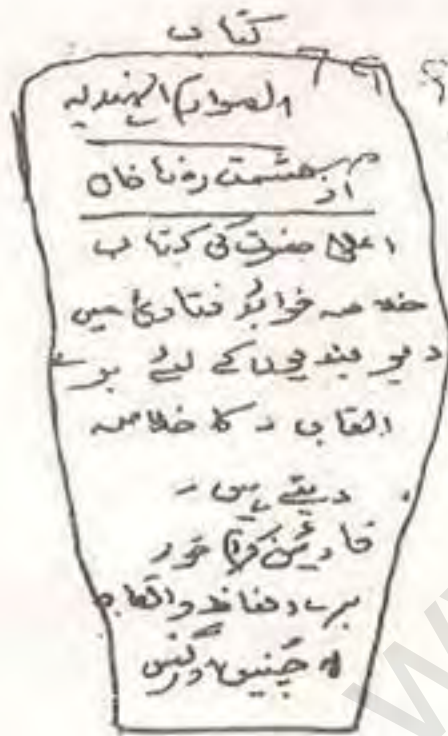 کتاب
الصوارم الہندیہ
از حشمت رضا خان
اعلیٰ حضرت کی کتاب
خلاصہ فوائد فتاویٰ میں
دیوبندیوں کے لئے برے
القاب کا خلاصہ
دیتے ہیں۔
قارئین کرام خود
برے الفاظ و القاب
چنیں